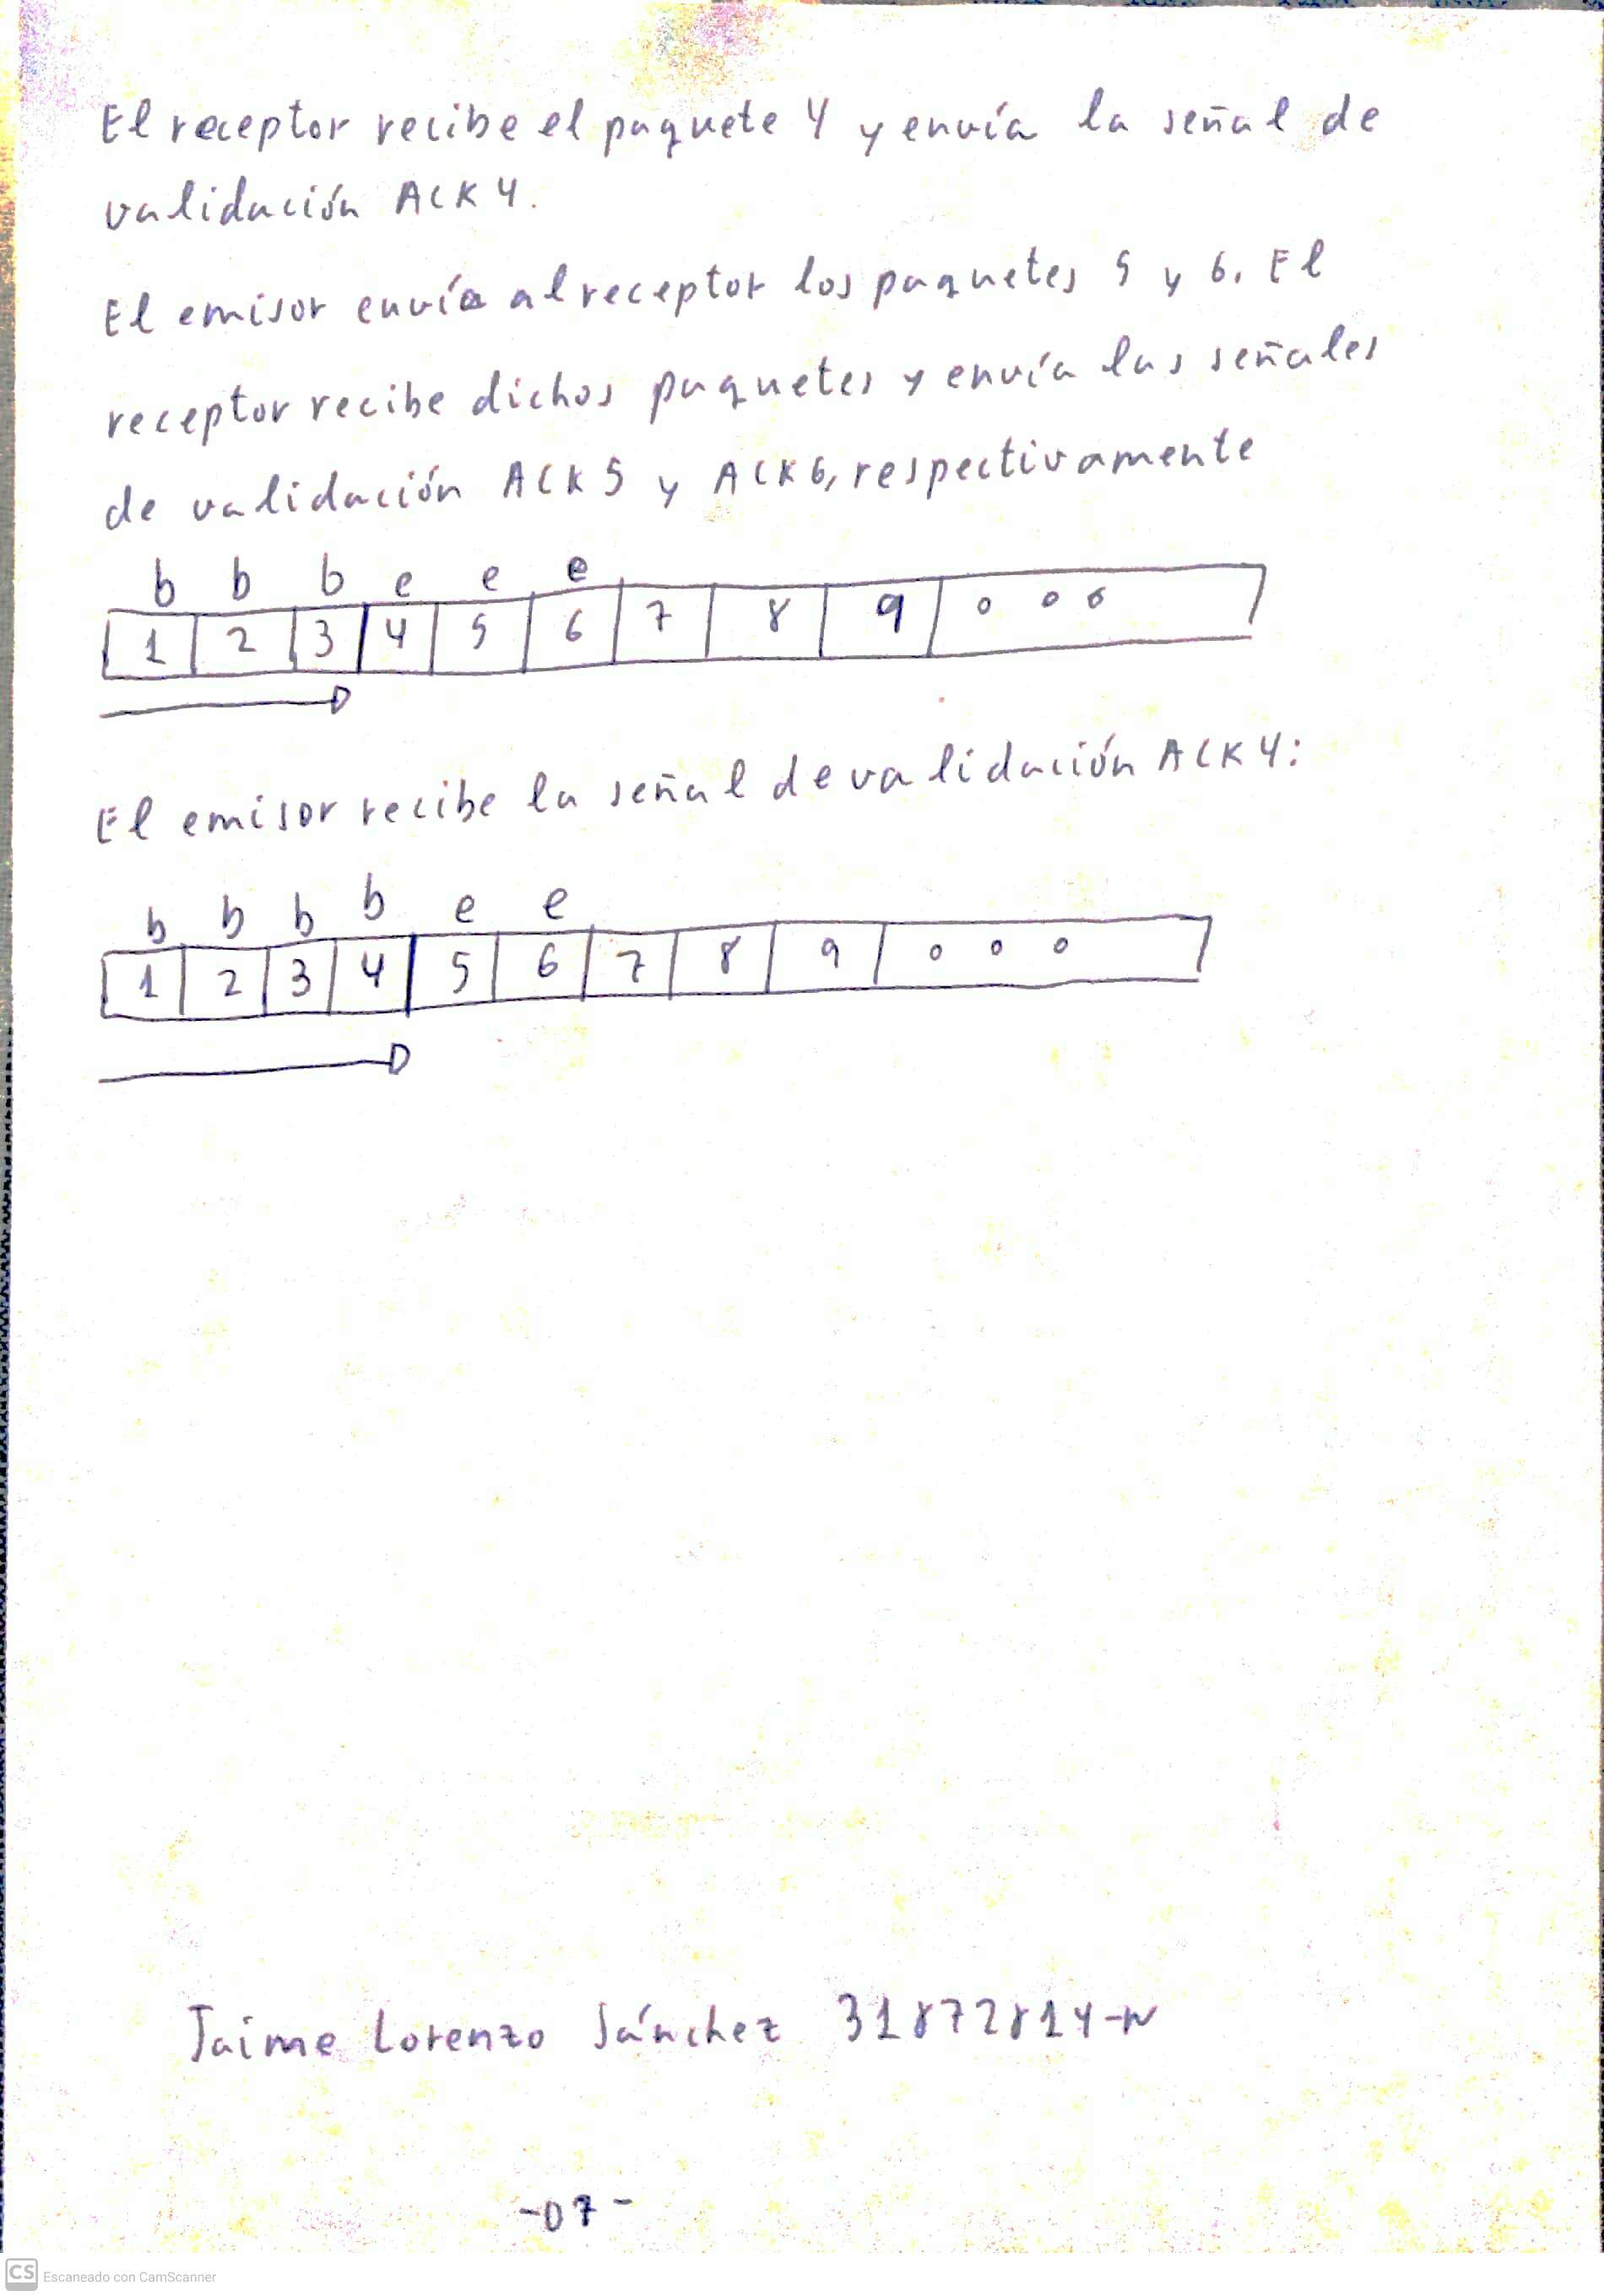 El receptor recibe el paquete 4 y envía la señal de
validación ACK4.
El emisor envía al receptor los paquetes 5 y 6. El
receptor recibe dichos paquetes y envía las señales
de validación ACK5 y ACK6, respectivamente
b b b e e e
1 2 3 4 5 6 7 8 9 o o o
El emisor recibe la señal de validación ACK4:
b b b b e e
1 2 3 4 5 6 7 8 9 o o o
Jaime Lorenzo Sánchez 31872814-N
-07-
CS Escaneado con CamScanner